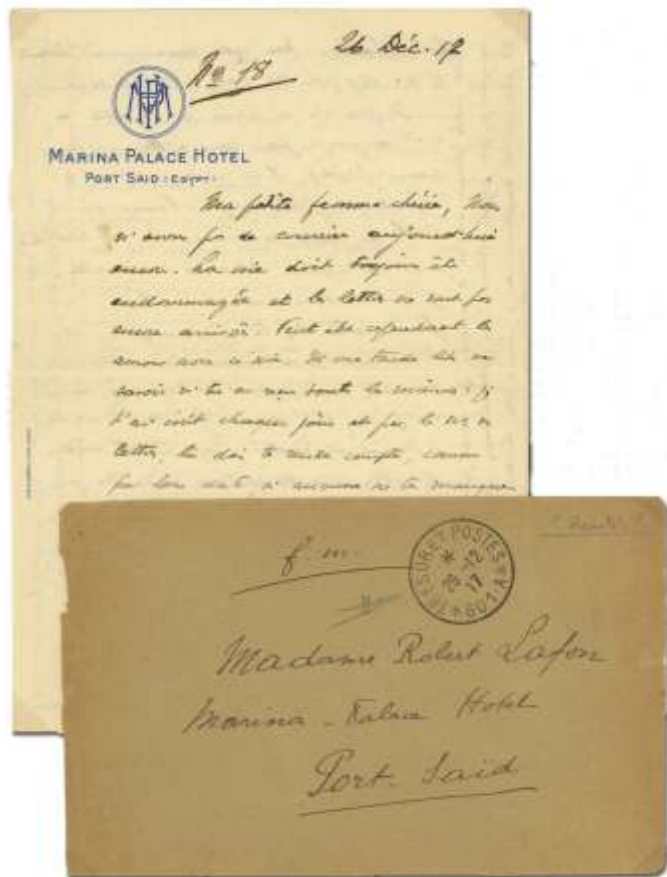 No 18
26 Déc. 17
MARINA PALACE HOTEL
PORT SAID : EGYPT :
Ma petite femme chérie, Nous
n'avons pas de courrier aujourd'hui
encore. La voie doit toujours être
endommagée et les lettres ne sont pas
encore arrivées. Peut être cependant les
aurons nous ce soir. Il me tarde de
savoir si tu as reçu toutes les miennes : je
t'ai écrit chaque jour et par le No de
lettre, tu dois te rendre compte, comme
par leur date, si aucune ne te manque
f. m.
TRESOR ET POSTES * 601 A *
* 26-12 17
Madame Robert Lafon
Marina - Palace Hotel
Port. Saïd